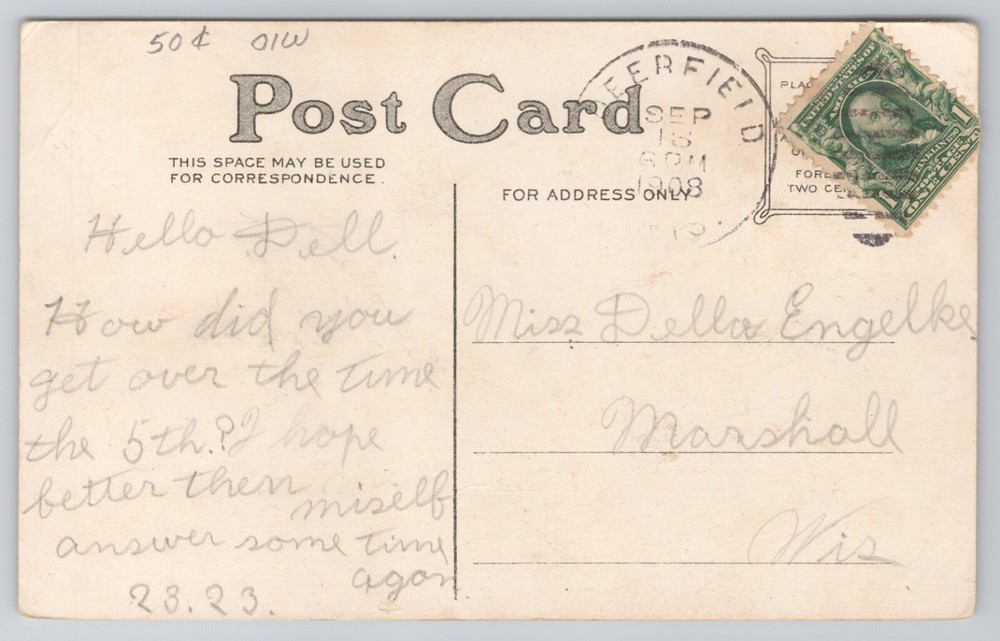 50¢ OIW
Post Card
THIS SPACE MAY BE USED
FOR CORRESPONDENCE.
FOR ADDRESS ONLY
EERFIELD
SEP
18
6 PM
1908
WIS.
PLAC
FORE
TWO CEN
1
ONE CENT
Hello Dell.
How did you
get over the time
the 5th.? I hope
better then miself
answer some time
agan
23.23.
Miss Della Engelke
Marshall
Wis